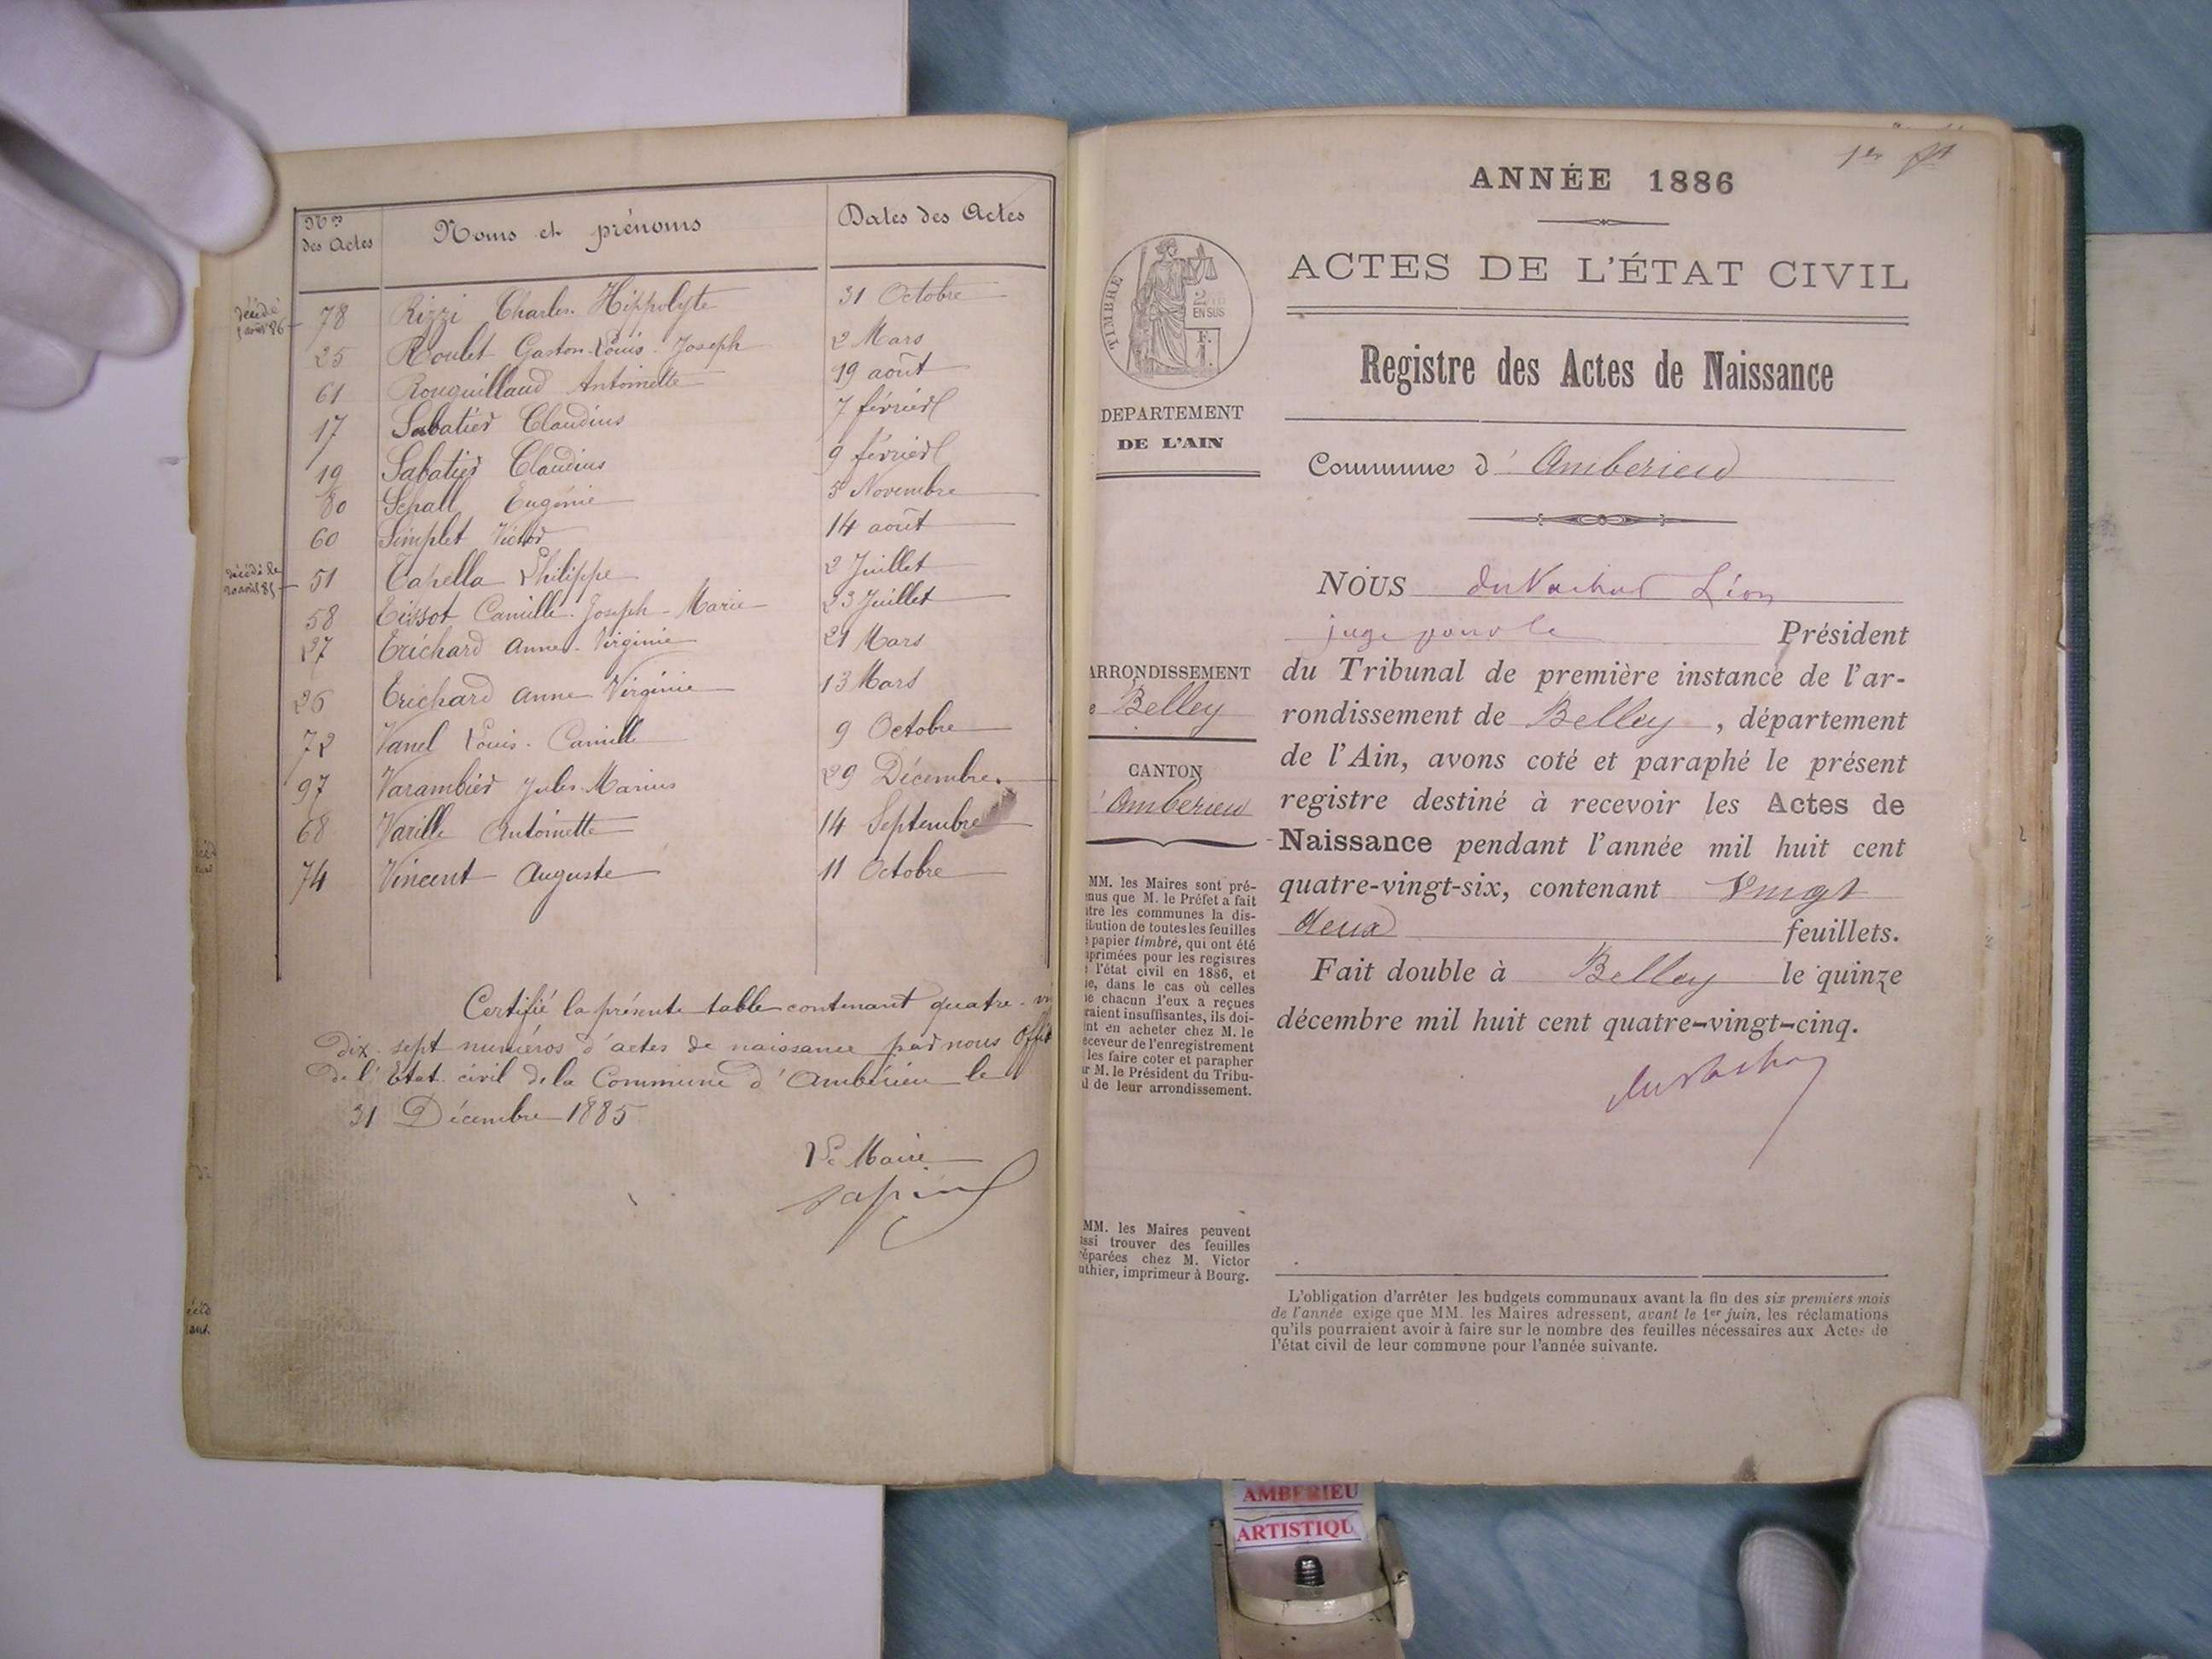 Nos des Actes Noms et prénoms Dates des Actes
décédé août 86 78 Rizzi Charles Hippolyte 31 Octobre
25 Roulet Gaston Louis Joseph 2 Mars
61 Rouquillaud Antoinette 19 août
17 Sabatier Claudius 7 février
19 Sabatier Claudius 9 février
80 Schall Eugénie 5 Novembre
60 Simplet Victor 14 août
décédé le 51 Capella Philippe 2 Juillet
58 Tissot Camille Joseph-Marie 23 Juillet
27 Trichard Anne Virginie 21 Mars
26 Trichard Anne Virginie 13 Mars
72 Vanel Louis-Camille 9 Octobre
97 Varambier Jules-Marius 29 Décembre.
68 Varille Antoinette 14 Septembre
74 Vincent Auguste 11 Octobre
Certifié la présente table contenant quatre-
dix-sept numéros d'actes de naissance par nous
de l'Etat civil de la Commune d'Ambérieu le
31 Décembre 1885
Le Maire
1er ft
ANNÉE 1886
ACTES DE L'ÉTAT CIVIL
Registre des Actes de Naissance
Commune d'Amberieu
NOUS Léon
juge pour le Président
du Tribunal de première instance de l'ar-
rondissement de Belley, département
de l'Ain, avons coté et paraphé le présent
registre destiné à recevoir les Actes de
Naissance pendant l'année mil huit cent
quatre-vingt-six, contenant Vingt
deux feuillets.
Fait double à Belley le quinze
décembre mil huit cent quatre-vingt-cinq.
TIMBRE
2/10 EN SUS
F. 1.
DEPARTEMENT
DE L'AIN
ARRONDISSEMENT
Belley
CANTON
Amberieu
MM. les Maires sont pré-
nus que M. le Préfet a fait
tre les communes la dis-
ibution de toutes les feuilles
papier timbré, qui ont été
primées pour les registres
l'état civil en 1886, et
e, dans le cas où celles
e chacun d'eux a reçues
raient insuffisantes, ils doi-
nt en acheter chez M. le
eceveur de l'enregistrement
les faire coter et parapher
r M. le Président du Tribu-
l de leur arrondissement.
MM. les Maires peuvent
ssi trouver des feuilles
réparées chez M. Victor
uthier, imprimeur à Bourg.
L'obligation d'arrêter les budgets communaux avant la fin des six premiers mois
de l'année exige que MM. les Maires adressent, avant le 1er juin, les réclamations
qu'ils pourraient avoir à faire sur le nombre des feuilles nécessaires aux Actes de
l'état civil de leur commune pour l'année suivante.
AMBERIEU
ARTISTIQU